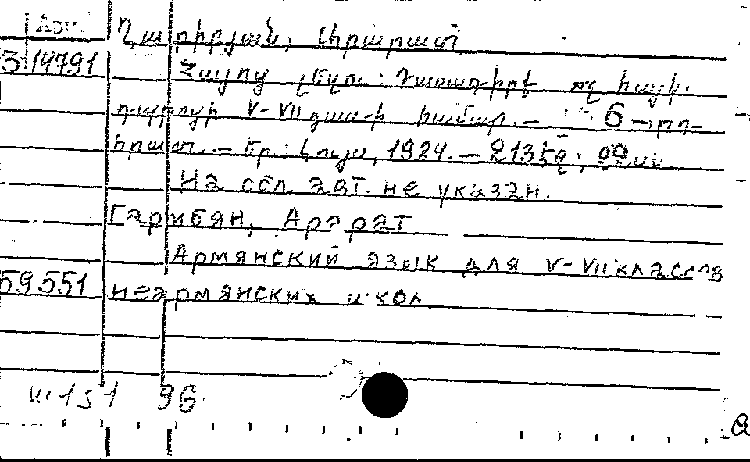 Арм.
Ղարիբյան, Արարատ
3.14791 Հայոց լեզու: Դասագիրք ոչ հայկ.
դպրոցի V-VII դաս-ի համար. — 6-րդ
հրատ. — Եր.: Լույս, 1924. — 135 էջ;
На обл. авт. не указан.
Гарибян, Арарат
Армянский язык для V-VII классов
59551 неармянских школ
96.